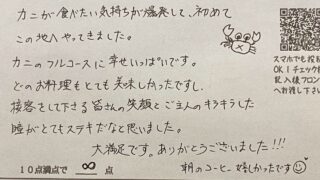 カニが食べたい気持ちが爆発して、初めて
この地へやってきました。
カニのフルコースに幸せいっぱいです。
どのお料理もとても美味しかったですし、
接客をして下さる皆さんの笑顔とご主人のキラキラした
瞳がとてもステキだなと思いました。
大満足です。ありがとうございました!!!
10点満点で ∞ 点
朝のコーヒー嬉しかったです
スマホでも投稿
OK!チェック
記入後フロン
へお渡し下さい